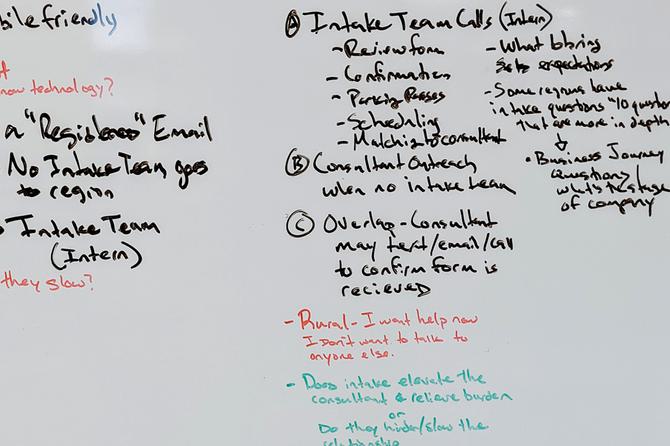 bile friendly
now technology?
a "Registeres" Email
No Intake Team goes
to region
Intake Team
(Intern)
they slow?
A Intake Team Calls (Intern)
- Review form
- Confirmation
- Parking Passes
- Scheduling
- Matching to consultant
B Consultant Outreach
when no intake team
C Overlap - Consultant
may text/email/call
to confirm form is
recieved
- Rural - I want help now
I don't want to talk to
anyone else.
- Does intake elevate the
consultant & relieve burden
or
Do they hinder/slow the
relationship
- What to bring
expectations
- Some regions have
intake questions "10 question
that are more in depth
• Business Journey
Questions/
what's the stage
of company